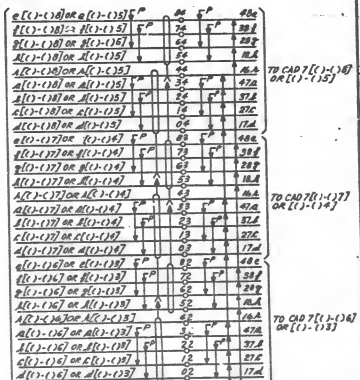 e[( )-( )8] OR e[( )-( )5] 84 48e
f[( )-( )8] OR f[( )-( )5] 74 38f
g[( )-( )8] OR g[( )-( )5] 64 28g
h[( )-( )8] OR h[( )-( )5] 54 18h
A[( )-( )8] OR A[( )-( )5] 44
a[( )-( )8] OR a[( )-( )5] 34 47a
TO CAD 7[( )-( )8]
OR [( )-( )5]
b[( )-( )8] OR b[( )-( )5] 24 37b
c[( )-( )8] OR c[( )-( )5] 14 27c
d[( )-( )8] OR d[( )-( )5] 04 17d
e[( )-( )7] OR [( )-( )4] 83 48e
f[( )-( )7] OR f[( )-( )4] 73 38f
g[( )-( )7] OR g[( )-( )4] 63 28g
h[( )-( )7] OR h[( )-( )4] 53 18h
A[( )-( )7] OR A[( )-( )4] 43
TO CAD 7[( )-( )7]
OR [( )-( )4]
a[( )-( )7] OR a[( )-( )4] 33 47a
b[( )-( )7] OR b[( )-( )4] 23 37b
c[( )-( )7] OR c[( )-( )4] 13 27c
d[( )-( )7] OR d[( )-( )4] 03 17d
e[( )-( )6] OR e[( )-( )3] 82 48e
f[( )-( )6] OR f[( )-( )3] 72 38f
g[( )-( )6] OR g[( )-( )3] 62 28g
h[( )-( )6] OR h[( )-( )3] 52 18h
A[( )-( )6] OR A[( )-( )3] 42
TO CAD 7[( )-( )6]
OR [( )-( )3]
a[( )-( )6] OR a[( )-( )3] 47a
b[( )-( )6] OR b[( )-( )3] 22 37b
c[( )-( )6] OR c[( )-( )3] 12 27c
d[( )-( )6] OR d[( )-( )3] 02 17d